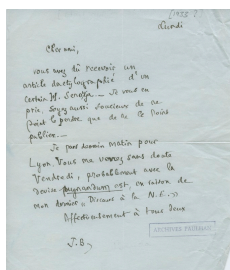 [1955]
Lundi
Cher ami,
vous avez dû recevoir un
article dactylographié d'un
certain H.
prie, soyez aussi soucieux de ne
point le perdre que de ne le point
publier. _
Je pars demain matin pour
Lyon. Vous me verrez sans doute
Vendredi, probablement avec la
devise pugnandum est, en raison de
mon dernier « Discours à la N.
Affectueusement à tous deux
J. B.
ARCHIVES